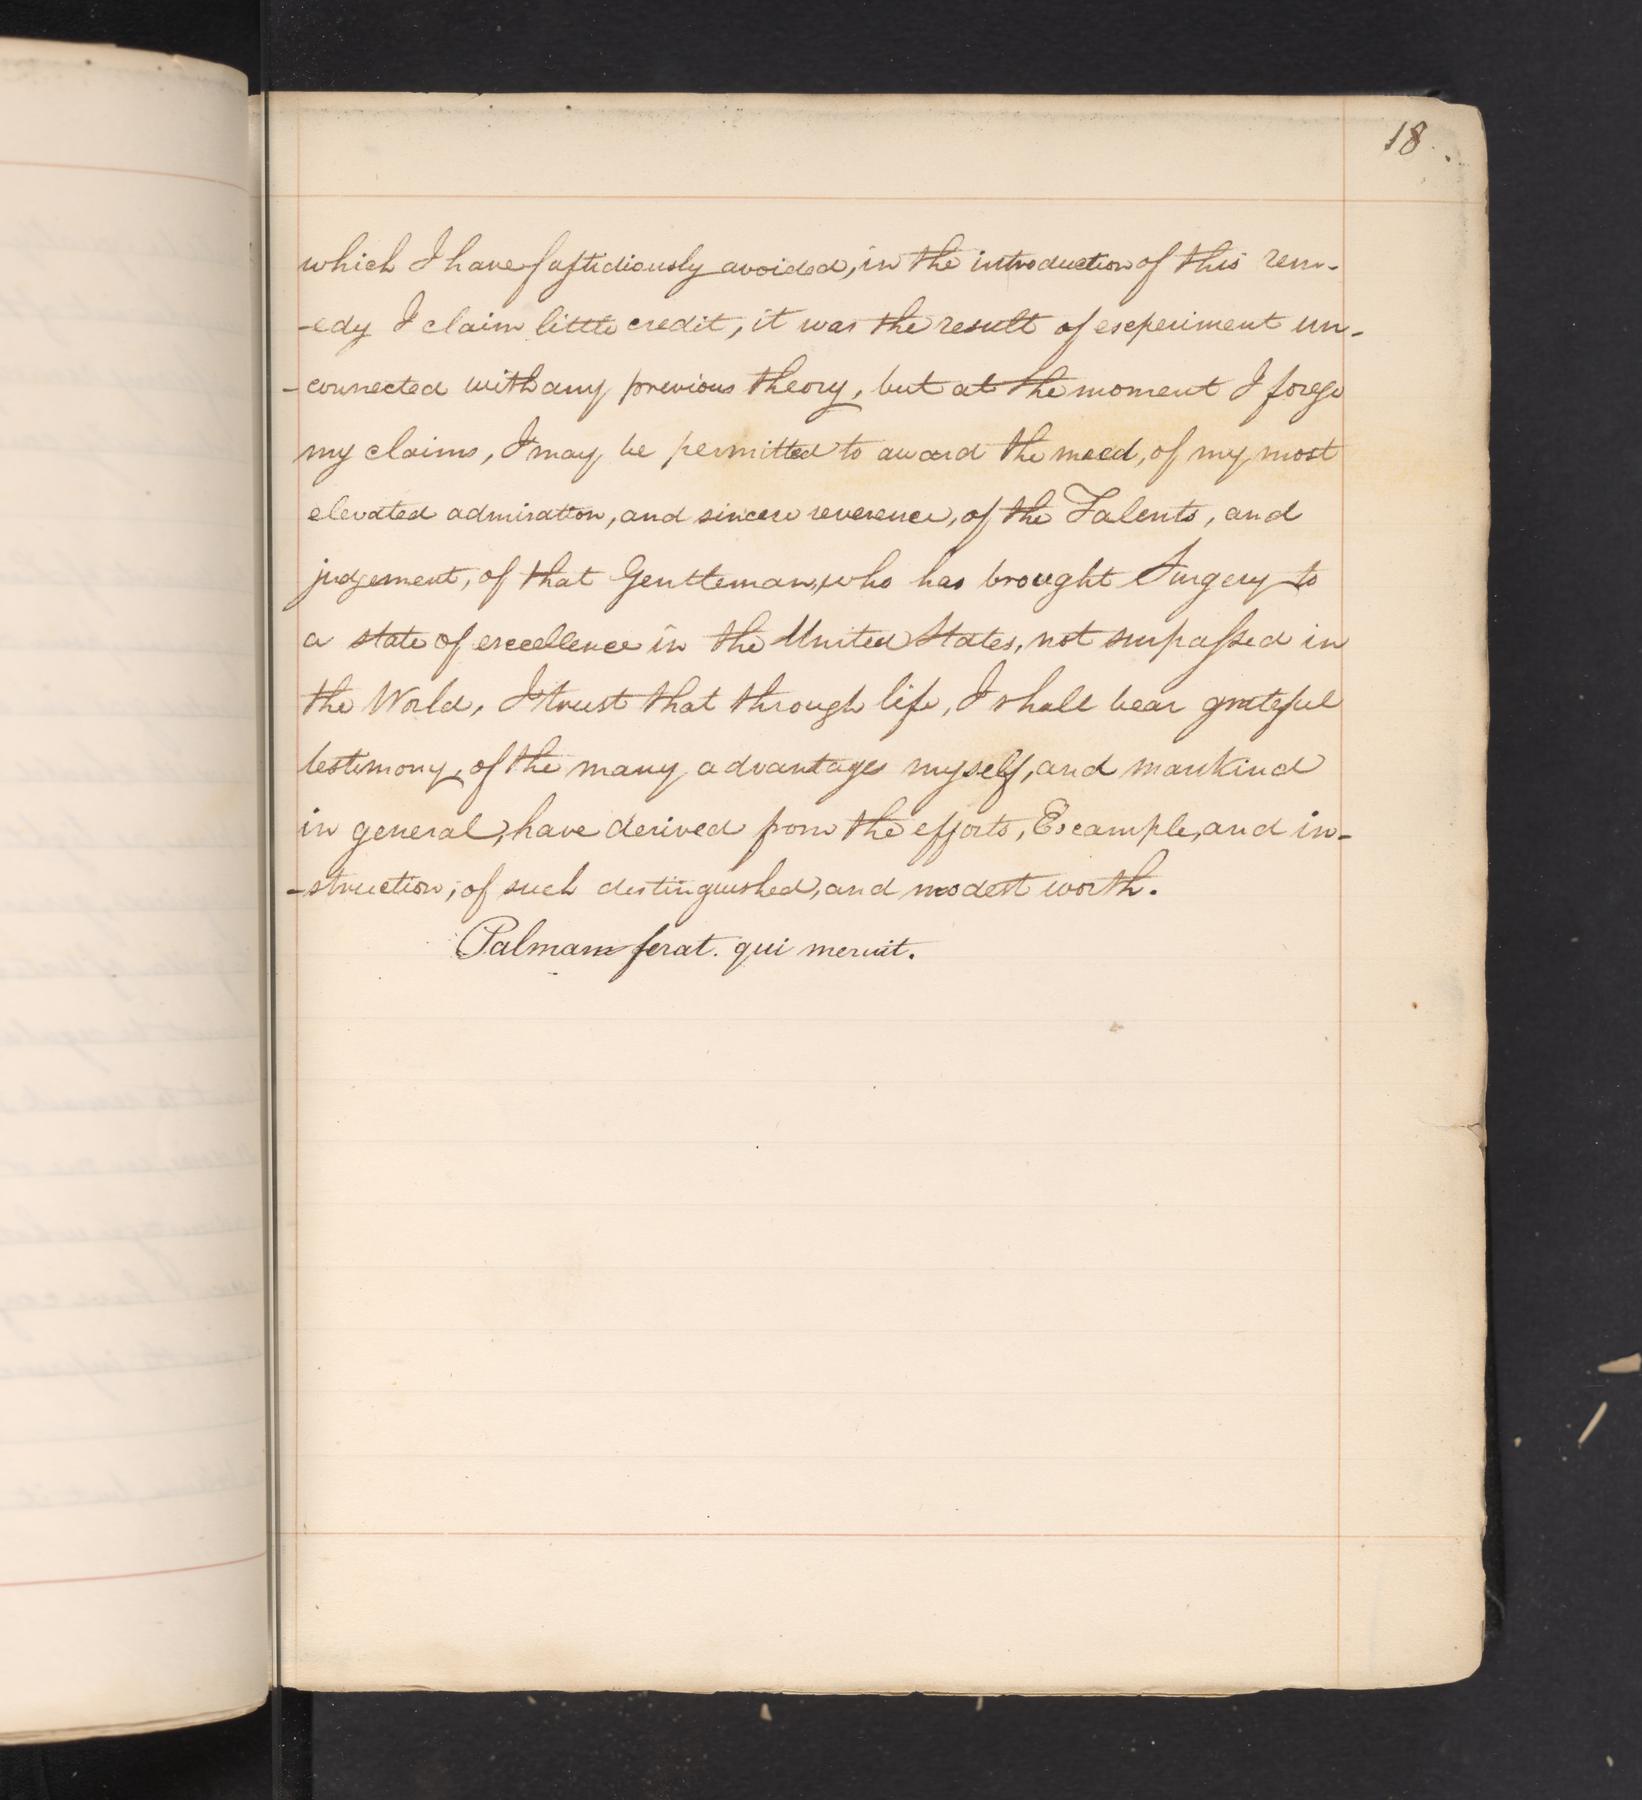 18.
which I have fastidiously avoided, in the introduction of this rem-
-edy I claim little credit, it was the result of experiment un-
-connected with any previous theory, but at the moment I forego
my claims, I may be permitted to award the meed, of my most
elevated admiration, and sincere reverence, of the Talents, and
judgement, of that Gentleman, who has brought Surgery to
a state of excellence in the United States, not surpassed in
the World, I trust that through life, I shall bear grateful
testimony, of the many advantages myself, and mankind
in general, have derived from the efforts, Example, and in-
-struction, of such distinguished, and modest worth.
Palmam ferat. qui meruit.